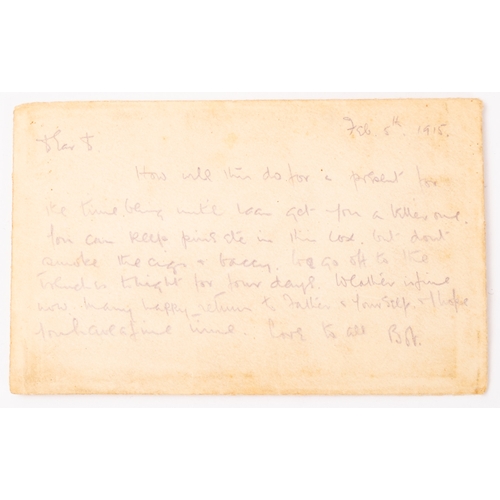 Feb 5th. 1915.
Dear D.
How will this do for a present for
the time being until I can get you a better one.
You can keep pins etc in this box, but don't
smoke the cigs & baccy. We go off to the
trenches tonight for four days. Weather is fine
now. Many happy returns to Father & Yourself. & I hope
you have a fine time. Love to all